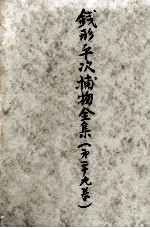 銭形平次捕物全集(第二十九巻)